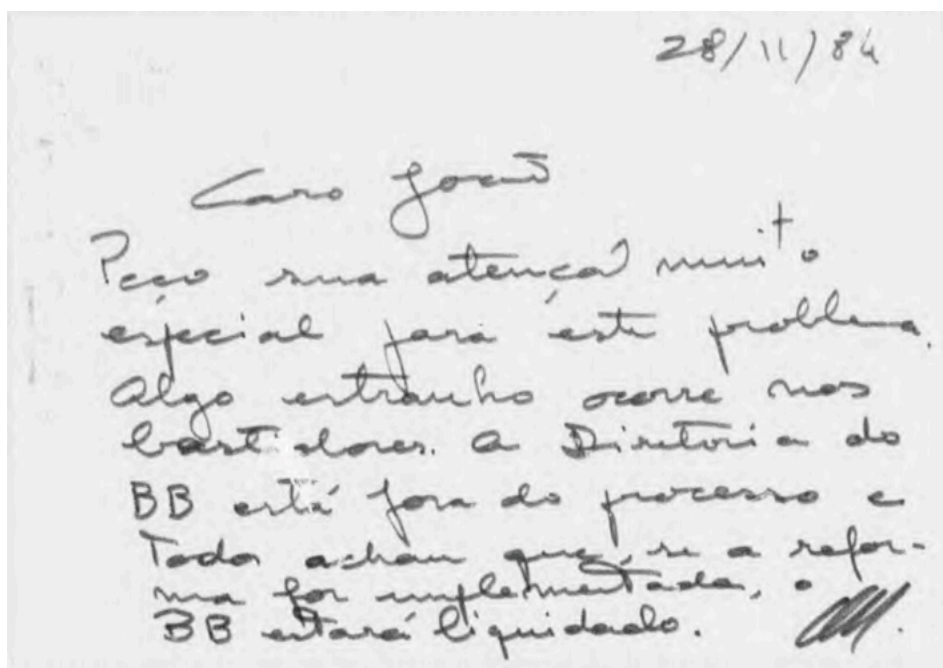 28/11/84
Caro João
Peço sua atenção muito
especial para este problema.
Algo estranho ocorre nos
bastidores. A Diretoria do
BB está fora do processo e
Todos acham que, se a refor-
ma for implementada, o
BB estará liquidado.